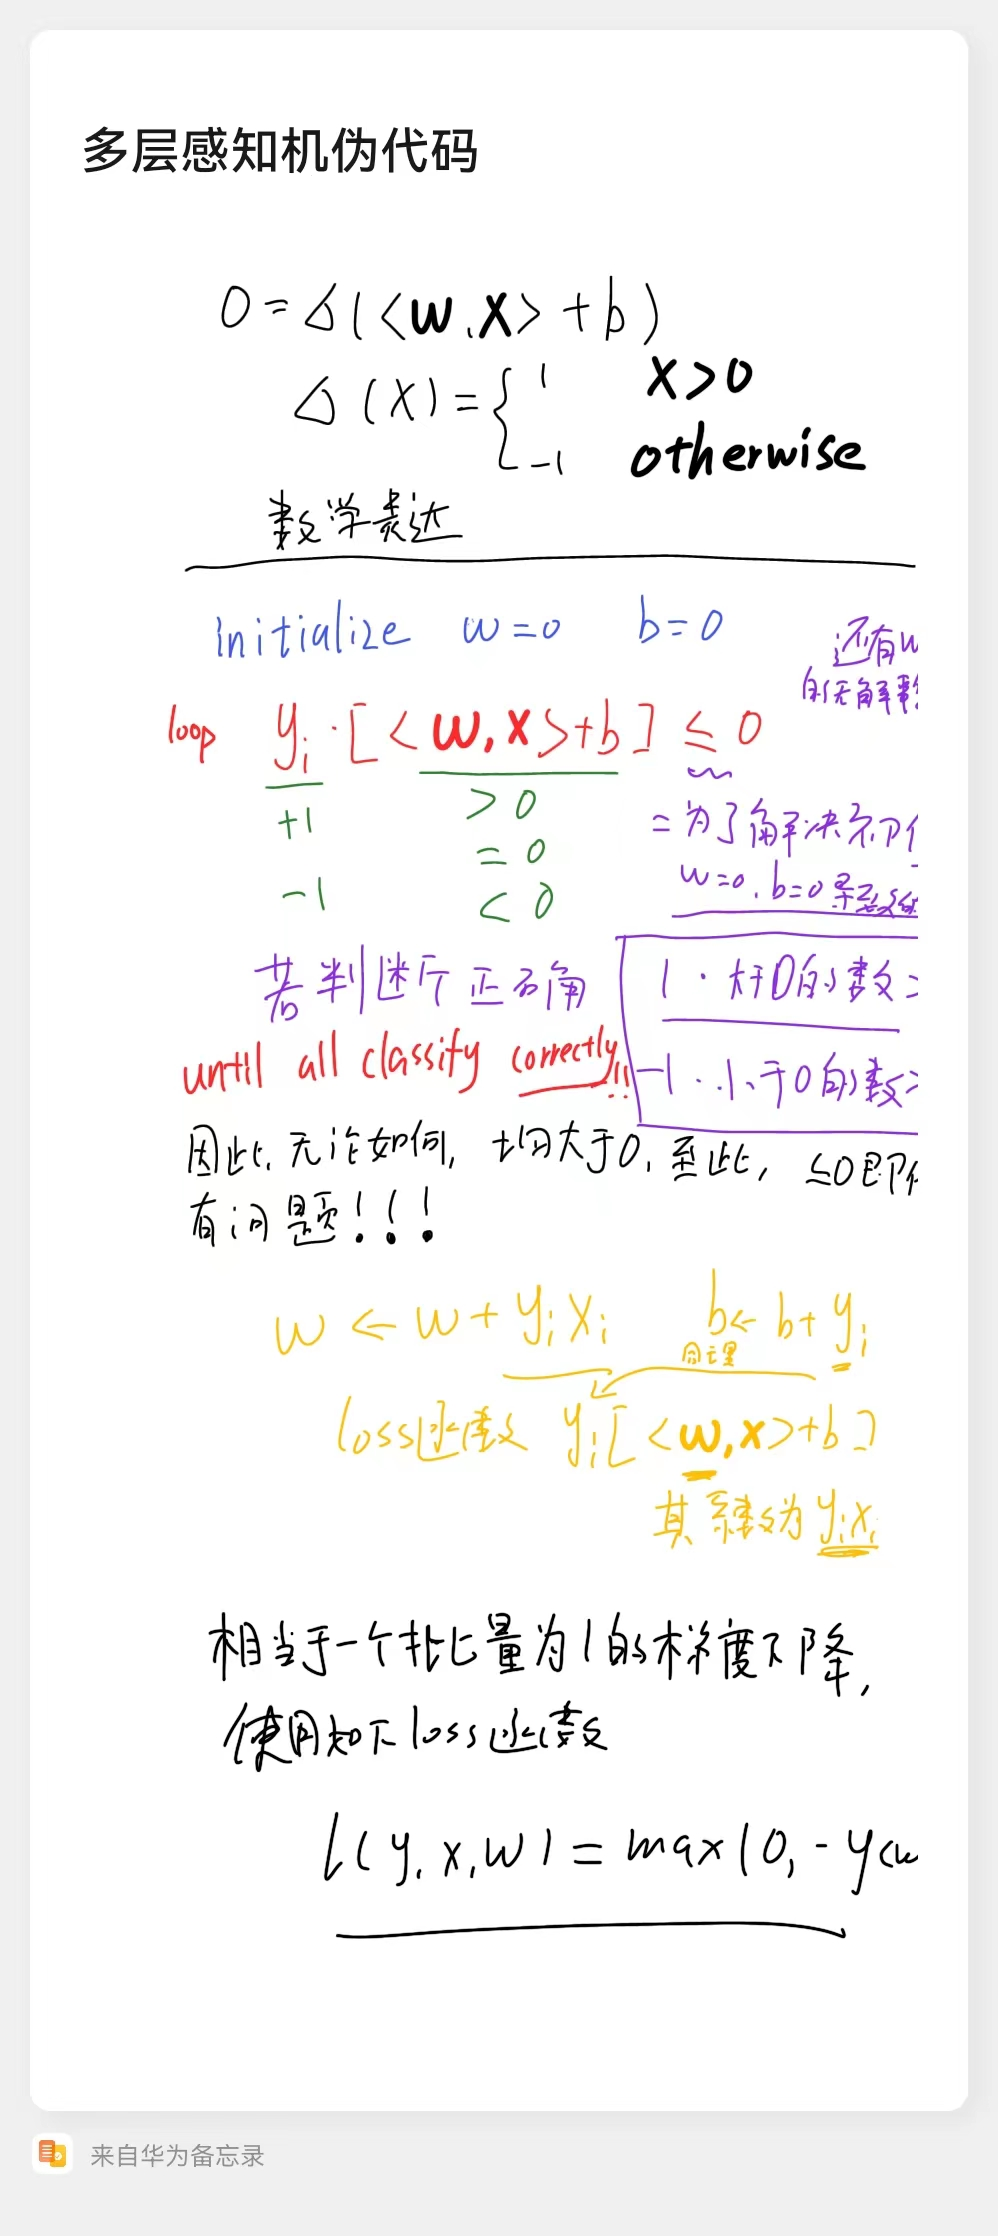 多层感知机伪代码
0=△(<w,x>+b)
△(x)={ 1 x>0
-1 otherwise
数学表达
initialize w=0 b=0
还有w
的无解
loop yi·[<w,x>+b]≤0
+1 >0
=0
-1 <0
=为了解决初
w=0.b=0导致
若判断正确
1·大于0的数
-1·小于0的数
until all classify correctly!!
因此,无论如何,均大于0,至此,≤0即
有问题!!!
w←w+yixi b←b+yi
同理
loss函数 yi[<w,x>+b]
其系数为yixi
相当于一个批量为1的梯度下降,
使用如下loss函数
l(y,x,w)=max(0,-y<w
来自华为备忘录